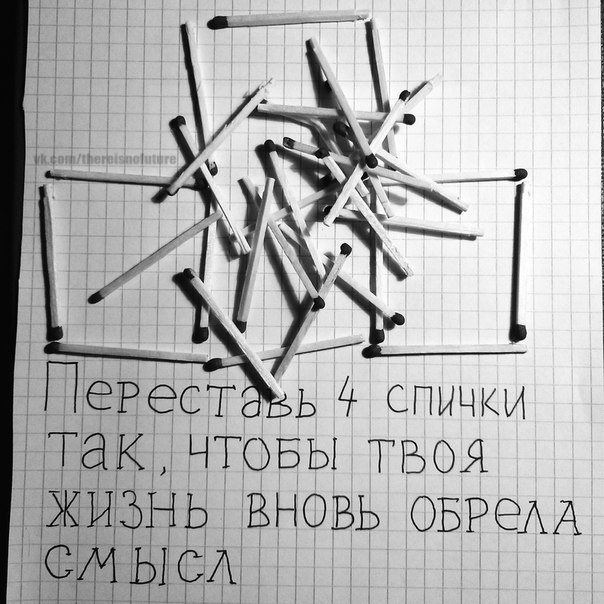 vk.com/thereisnofuture
Переставь 4 спички
так, чтобы твоя
жизнь вновь обрела
смысл